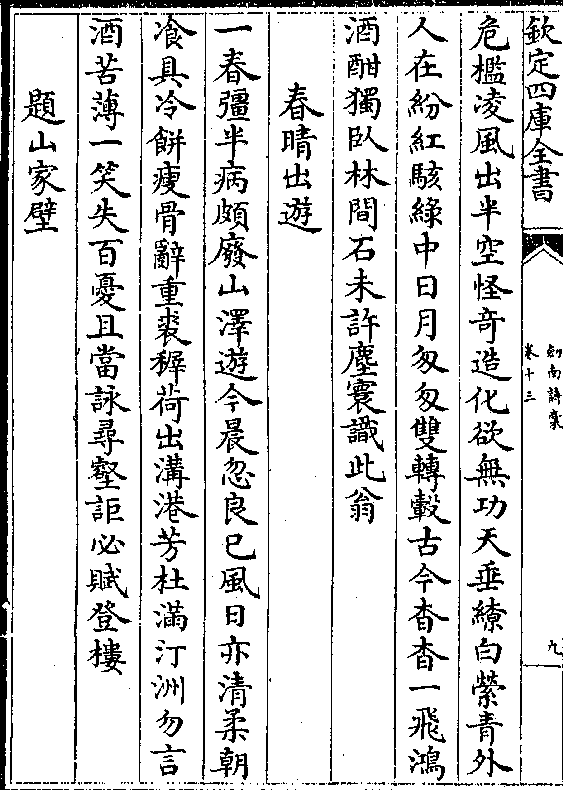 欽定四庫全書
劍南詩稾
卷十三
九
危檻凌風出半空怪竒造化欲無功天垂繚白縈青外
人在紛紅駭綠中日月匆匆雙轉轂古今杳杳一飛鴻
酒酣獨臥林間石未許塵寰識此翁
春晴出遊
一春彊半病頗廢山澤遊今晨忽良已風日亦清柔朝
飡具冷餅瘦骨辭重裘穉荷出溝港芳杜滿汀洲勿言
酒苦薄一笑失百憂且當詠尋壑詎必賦登樓
題山家壁